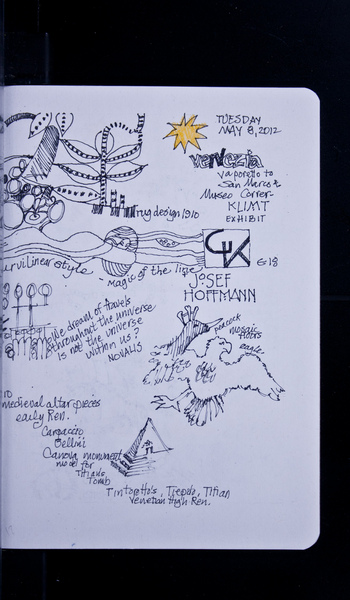 TUESDAY
MAY 8, 2012
venezia
vaporetto to
San Marco &
Museo Correr
KLIMT
EXHIBIT
rug design 1910
curvilinear style - magic of the line
G 18
JOSEF
HOFFMANN
We dream of travels
throughout the universe
is not the universe
within us?
NOVALIS
peacock
mosaic
floors
eagle
medieval altar pieces
early Ren.
Carpaccio
Bellini
Canova monument
model for
Titian's
Tomb
Tintoretto's, Tiepolo, Titian
Venetian High Ren.